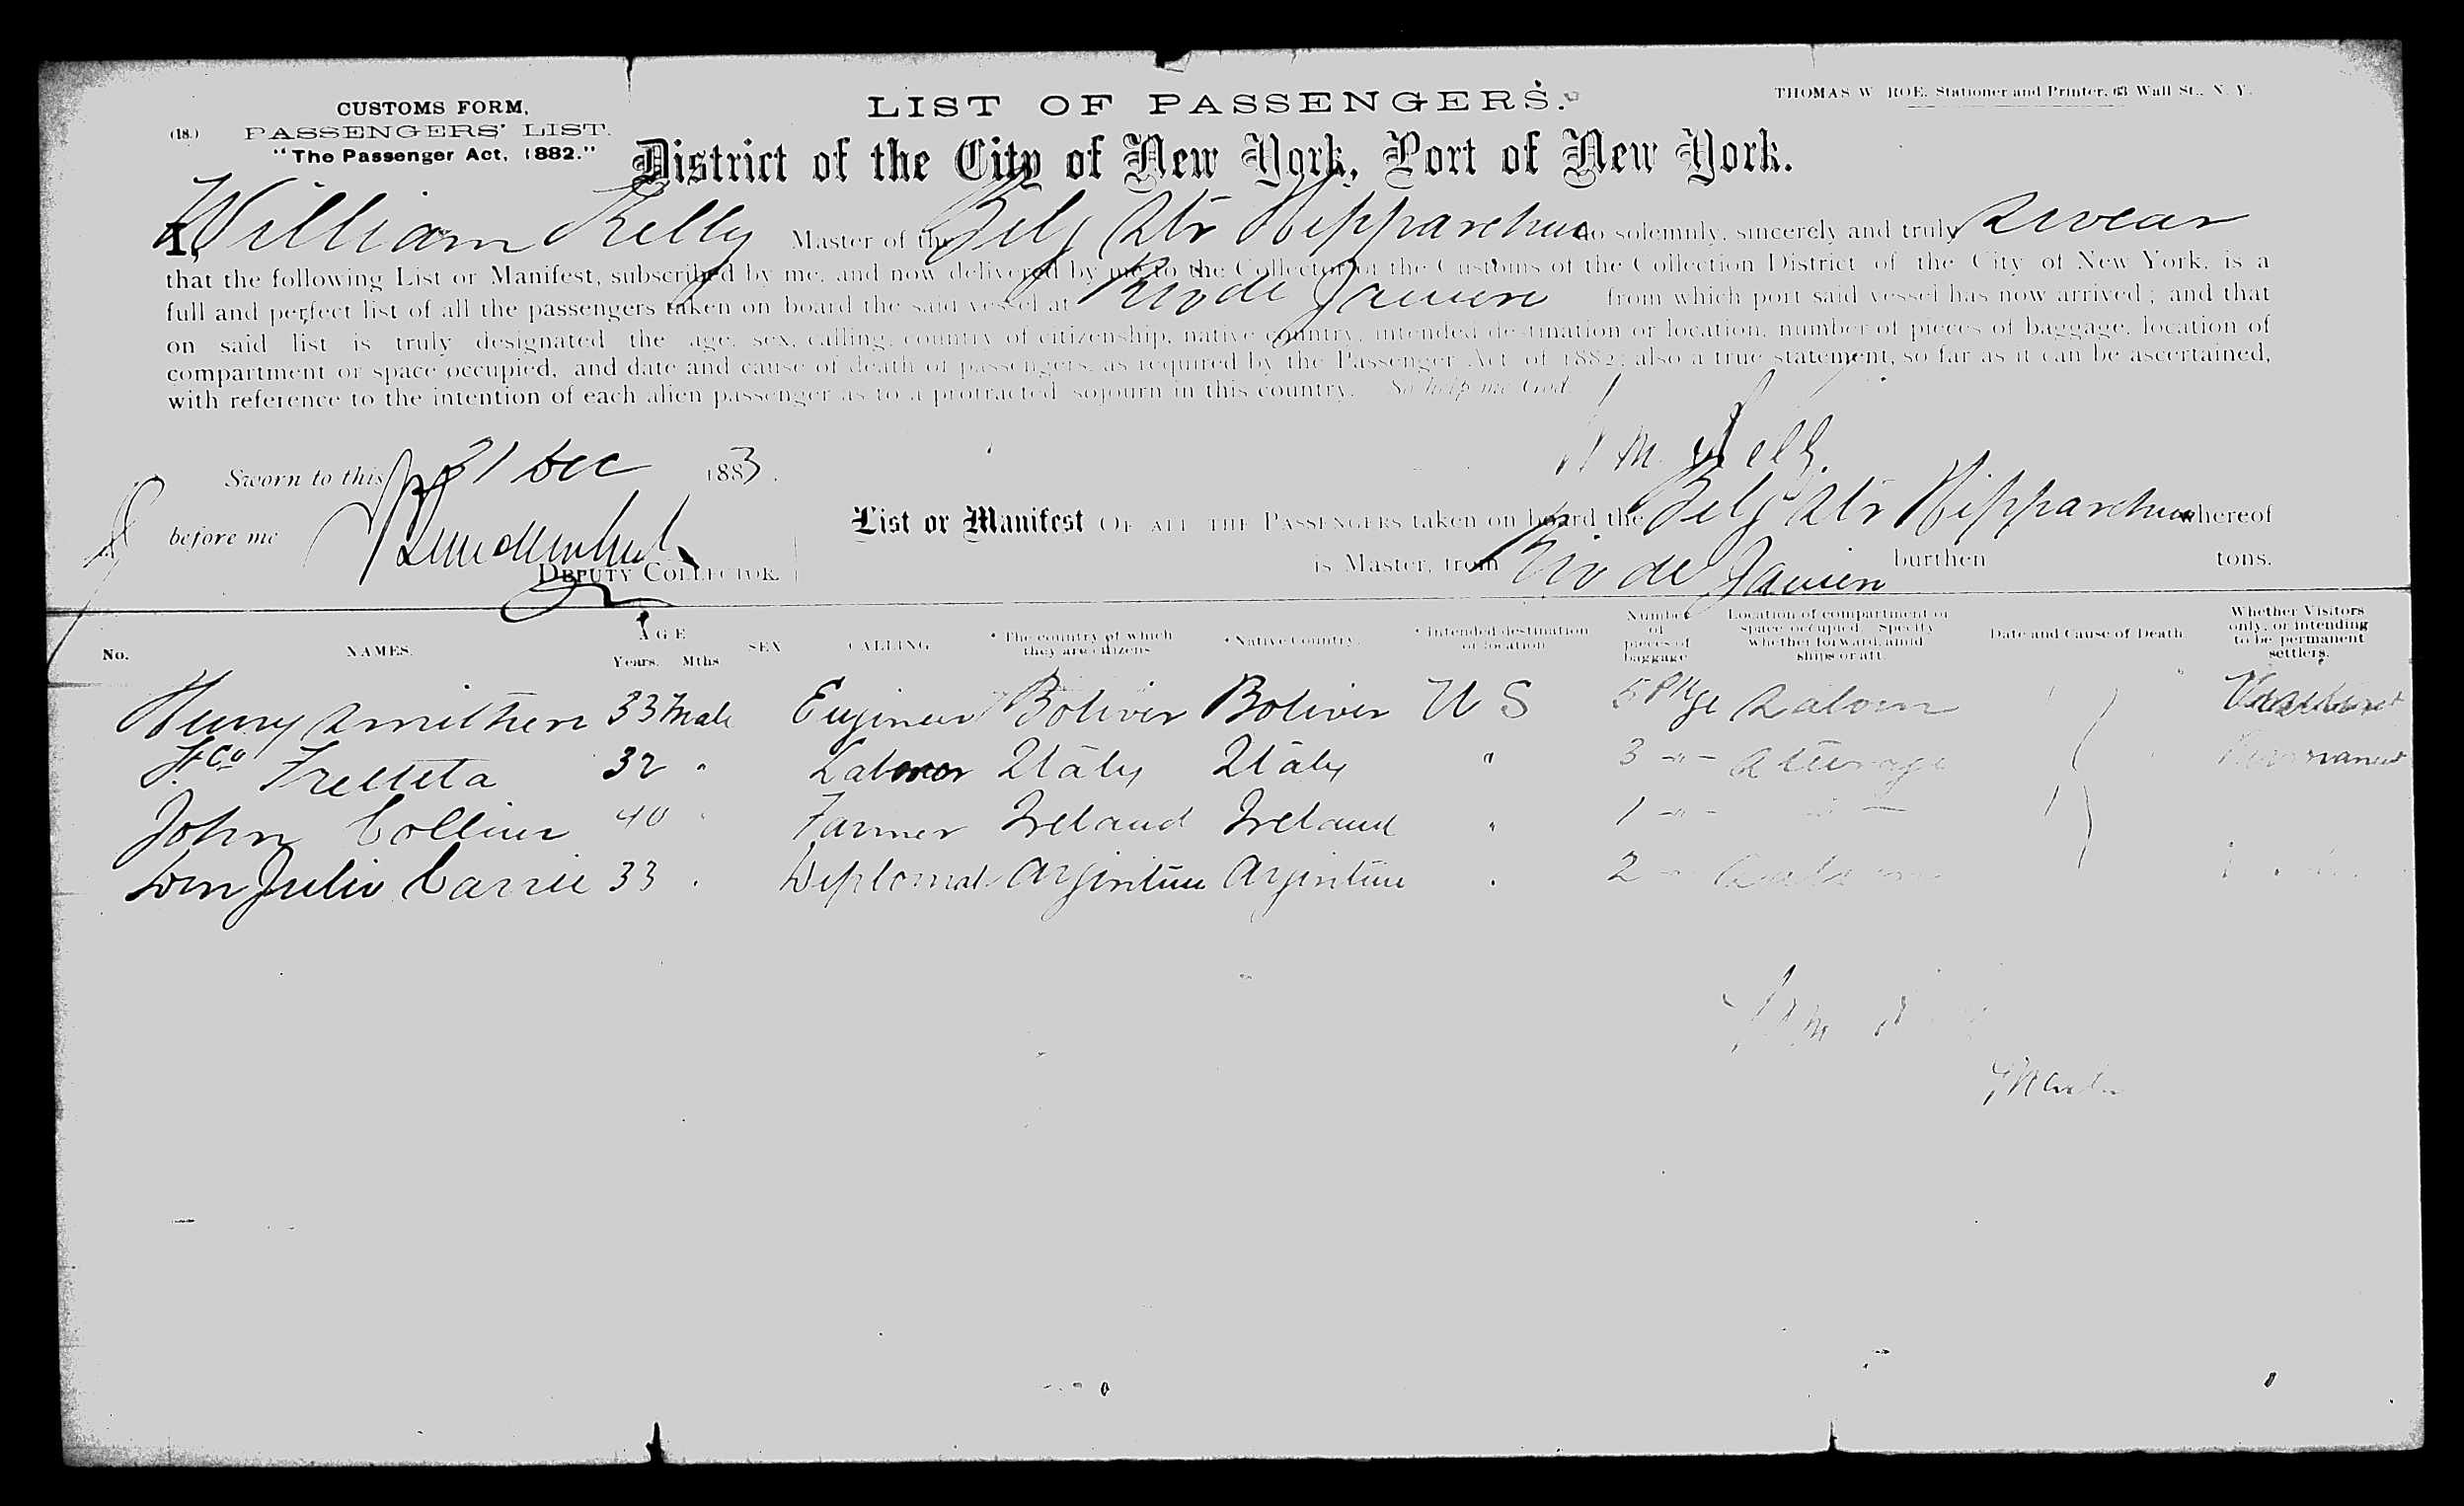 CUSTOMS FORM,
(18.) PASSENGERS' LIST.
"The Passenger Act, 1882."
LIST OF PASSENGERS.
THOMAS W. ROE, Stationer and Printer, 63 Wall St., N. Y.
District of the City of New York, Port of New York.
I, William Kelly Master of the Belg Str Hipparchus do solemnly, sincerely and truly swear
that the following List or Manifest, subscribed by me, and now delivered by me to the Collector of the Customs of the Collection District of the City of New York, is a
full and perfect list of all the passengers taken on board the said vessel at Rio de Janeiro from which port said vessel has now arrived; and that
on said list is truly designated the age, sex, calling, country of citizenship, native country, intended destination or location, number of pieces of baggage, location of
compartment or space occupied, and date and cause of death of passengers, as required by the Passenger Act of 1882; also a true statement, so far as it can be ascertained,
with reference to the intention of each alien passenger as to a protracted sojourn in this country. So help me God.
Wm. Kelly.
Sworn to this 31 Dec 1883.
before me
DEPUTY COLLECTOR.
List or Manifest OF ALL THE PASSENGERS taken on board the Belg Str Hipparchus whereof
is Master, from Rio de Janeiro burthen tons.
No. NAMES. AGE Years. Mths SEX CALLING * The country of which they are citizens * Native Country. * Intended destination or location Number of pieces of baggage Location of compartment or space occupied. Specify whether forward, amid ships or aft. Date and Cause of Death Whether Visitors only, or intending to be permanent settlers.
Henry Smithers 33 Male Engineer Boliver Boliver U S 5 Pkge Saloon
Fco 32 " Laborer Italy Italy " 3 -"- Steerage Permanent
John Collins 40 " Farmer Ireland Ireland " 1 -"- -"-
Don Julio Carrie 33 " Diplomat Argintine Argintine " 2 -
Wm
Master